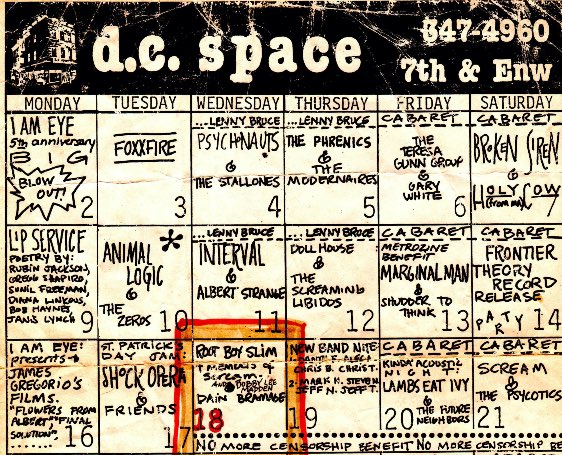 d.c. space
347-4960
7th & Enw
MONDAY TUESDAY WEDNESDAY THURSDAY FRIDAY SATURDAY
I AM EYE
5th anniversary
BIG
BLOW
OUT!
2
FOXXFIRE
3
...LENNY BRUCE
PSYCHONAUTS
&
THE STALLONES
4
...LENNY BRUCE
THE PHRENICS
&
THE
MODERNAIRES
5
CABARET
THE
TERESA
GUNN GROUP
&
GARY
WHITE
6
CABARET
BROKEN SIREN
&
HOLY COW
7
LIP SERVICE
POETRY BY:
RUBIN JACKSON,
GREGG SHAPIRO,
SUNIL FREEMAN,
DIANA LINKOUS,
BOB HAYNES
JANIS LYNCH
9
ANIMAL *
LOGIC
&
THE
ZEROS
10
...LENNY BRUCE
INTERVAL
&
ALBERT STRANGE
11
...LENNY BRUCE
DOLL HOUSE
&
THE
SCREAMING
LIBIDOS
12
CABARET
METROZINE
BENEFIT
MARGINAL MAN
&
SHUDDER TO
THINK
13
CABARET
FRONTIER
THEORY
RECORD
RELEASE
PARTY
14
I AM EYE:
PRESENTS
JAMES
GREGORIO'S
FILMS.
"FLOWERS FROM
ALBERT," "FINAL
SOLUTION"
16
ST. PATRICK'S
DAY JAM:
SHOCK OPERA
&
FRIENDS
17
ROOT BOY SLIM
MEMBERS of
SCREAM
AND BOBBY LEE
DAIN BRAMAGE
18
NEW BAND NITE:
CHRIS B. CHRIS T.
2. MARK H. STEVEN
JEFF N. JOFF T.
19
CABARET
KINDA' ACOUSTIC
NIGHT
LAMBS EAT IVY
& THE FUTURE
NEIGHBORS
20
CABARET
SCREAM
&
THE PSYCOTICS
21
NO MORE CENSORSHIP BENEFIT NO MORE CENSORSHIP BE